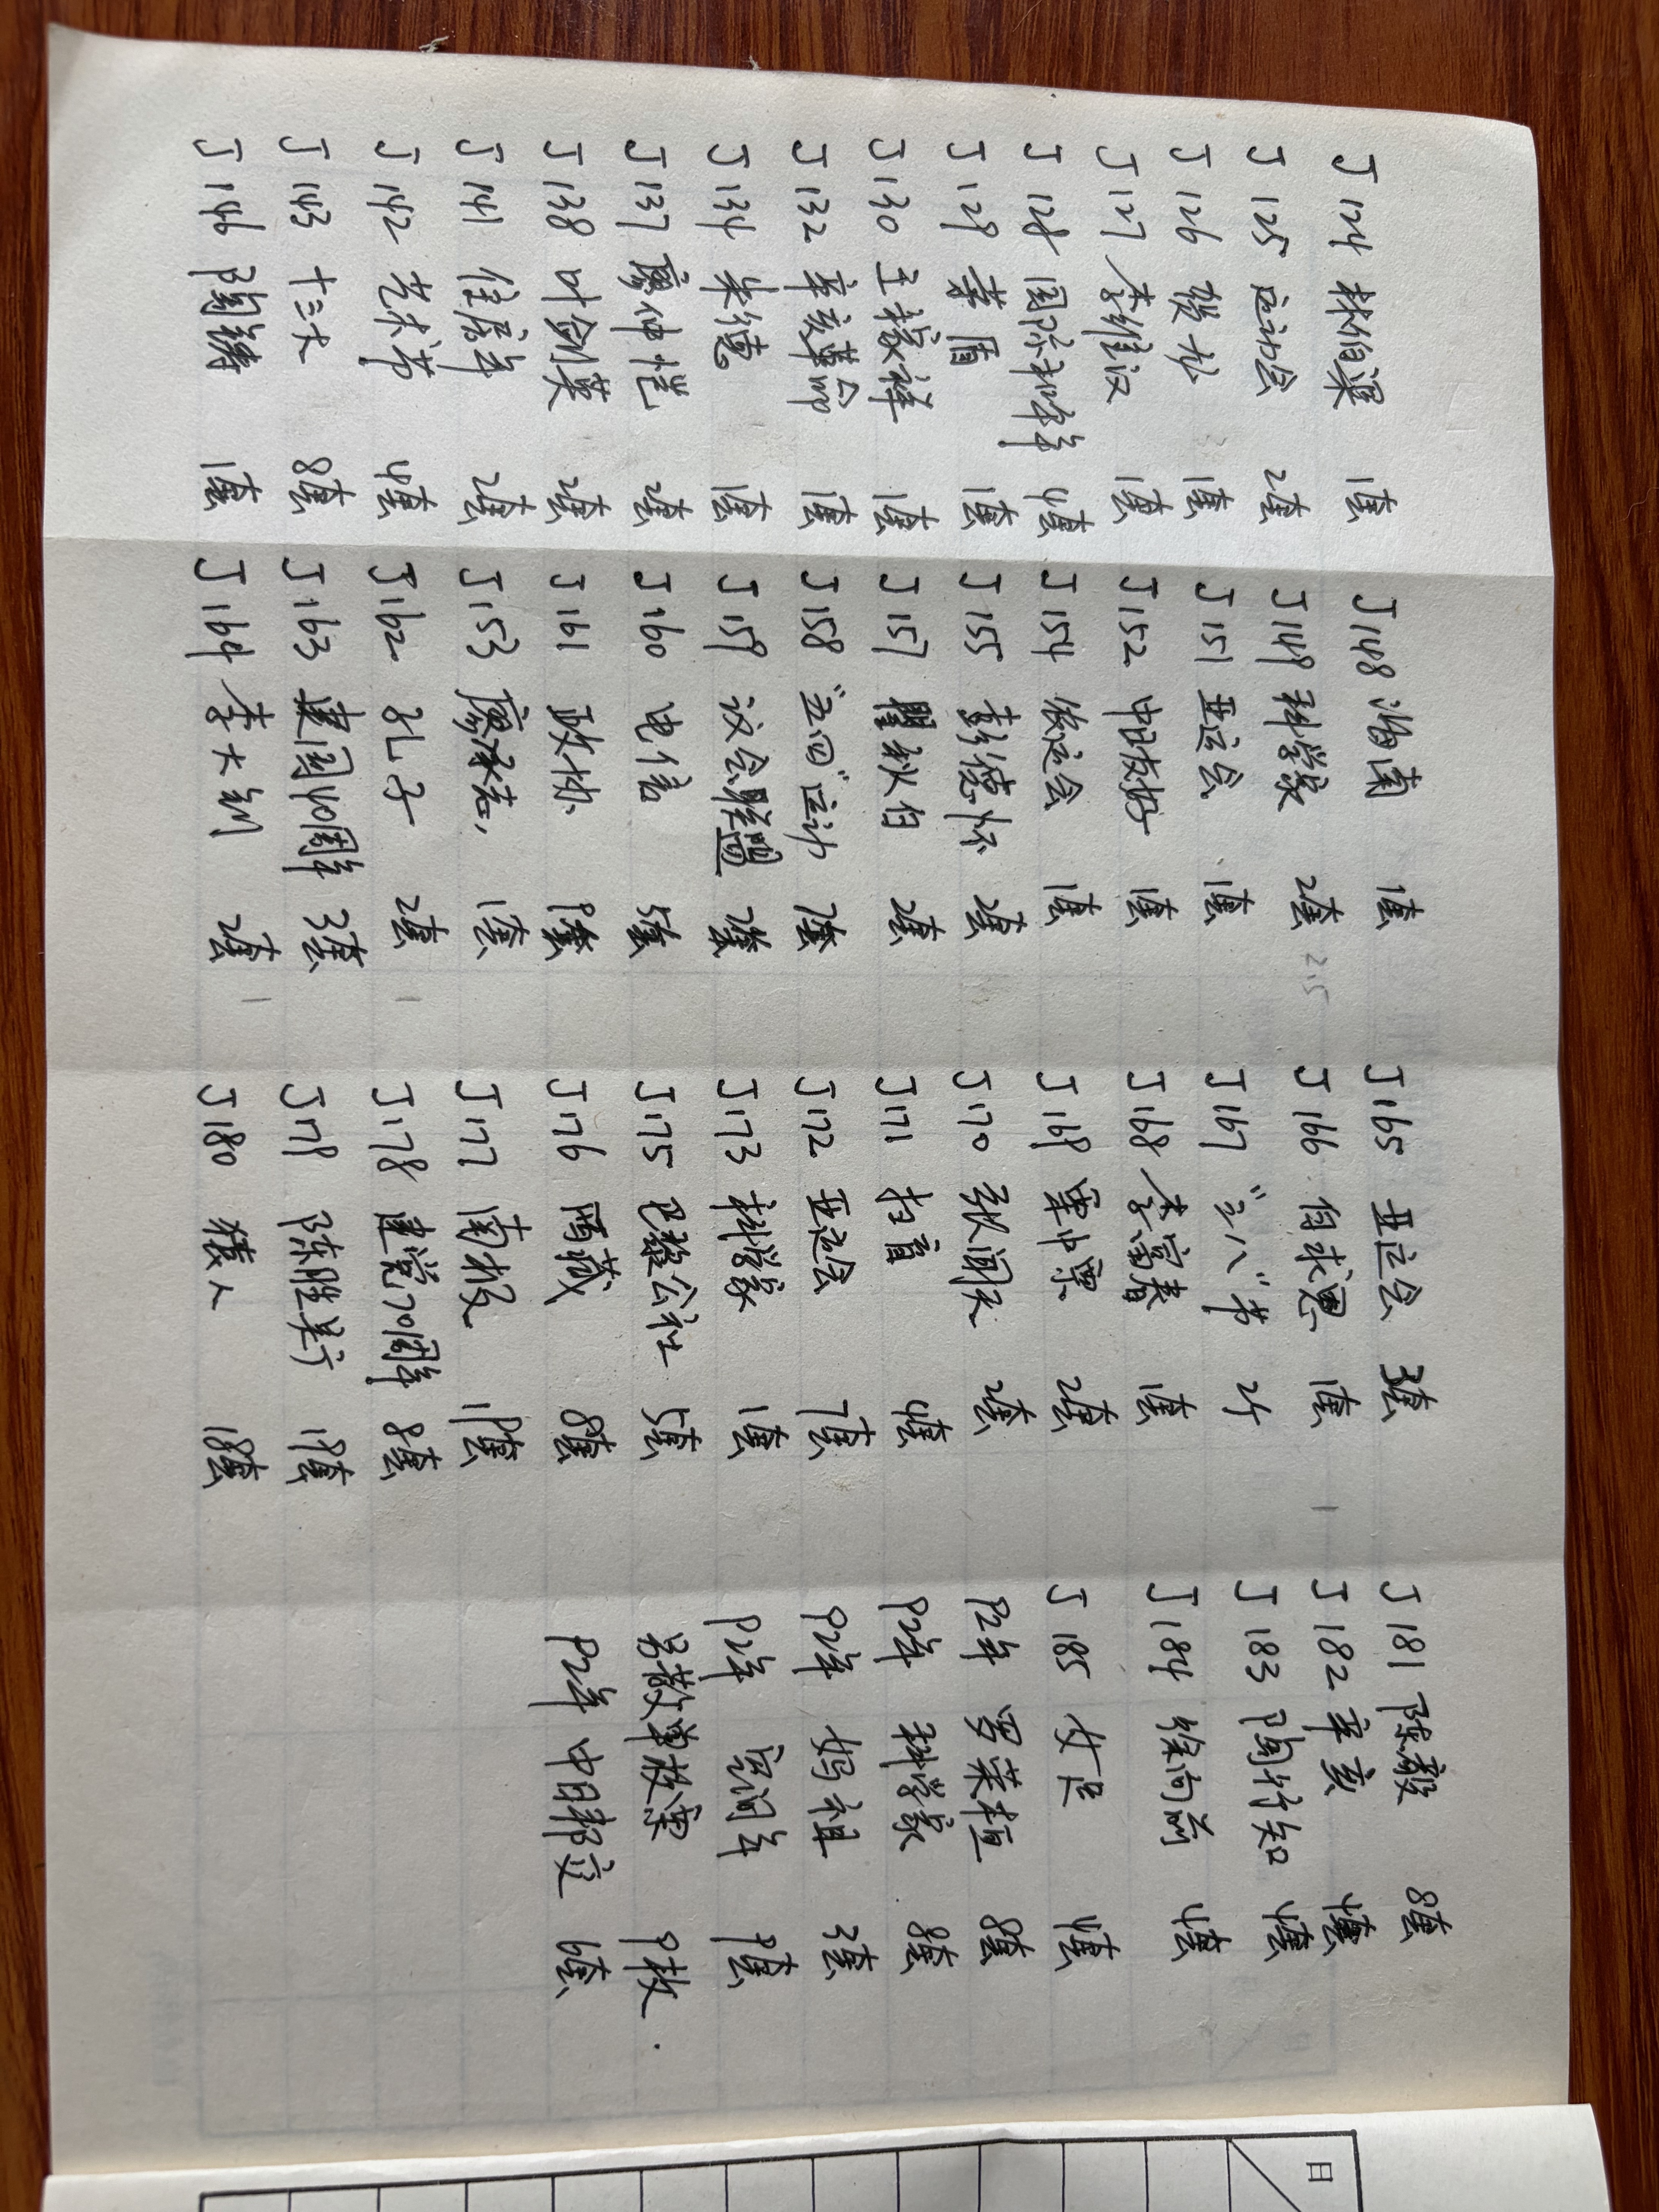 J124 林伯渠 1套
J125 运动会 2套
J126 殷墟 1套
J127 李维汉 1套
J128 国际和平年 4套
J129 董 1套
J130 王稼祥 1套
J132 辛亥革命 1套
J134 朱德 1套
J137 廖仲恺 2套
J138 叶剑英 2套
J141 住房年 2套
J142 艺术节 4套
J143 十三大 8套
J146 陶铸 1套
J148 海南 1套
J149 科学家 2套 215
J151 亚运会 1套
J152 中日友好 1套
J154 农运会 1套
J155 彭德怀 2套
J157 瞿秋白 2套
J158 "五四"运动 7套
J159 议会联盟 7套
J160 电信 5套
J161 政协 9套
J153 廖承志 1套
J162 孔子 2套
J163 建国40周年 3套
J164 李大钊 2套
J165 亚运会 3套
J166 白求恩 1套
J167 "三八"节 2个
J168 李富春 1套
J169 集中票 2套
J170 张闻天 2套
J171 扫盲 4套
J172 亚运会 7套
J173 科学家 1套
J175 巴黎公社 5套
J176 西藏 8套
J177 南极 19套
J178 建党70周年 8套
J179 陈胜吴广 19套
J180 猿人 18套
J181 陈毅 8套
J182 辛亥 4套
J183 陶行知 4套
J184 徐向前 4套
J185 女足 4套
92年 罗荣桓 8套
92年 科学家 8套
92年 妈祖 3套
92年 空间年 9套
另散单枚 9枚.
92年 中日邦交 6套
日